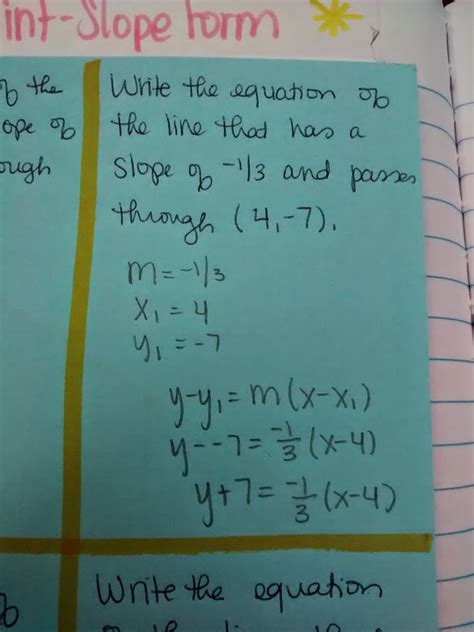 int-Slope Form
of the
ope of
ough
Write the equation of
the line that has a
Slope of -1/3 and passes
through (4,-7).
m=-1/3
x₁ = 4
y₁ = -7
y-y₁= m(x-x₁)
y--7= -1/3 (x-4)
y+7= -1/3 (x-4)
Write the equation